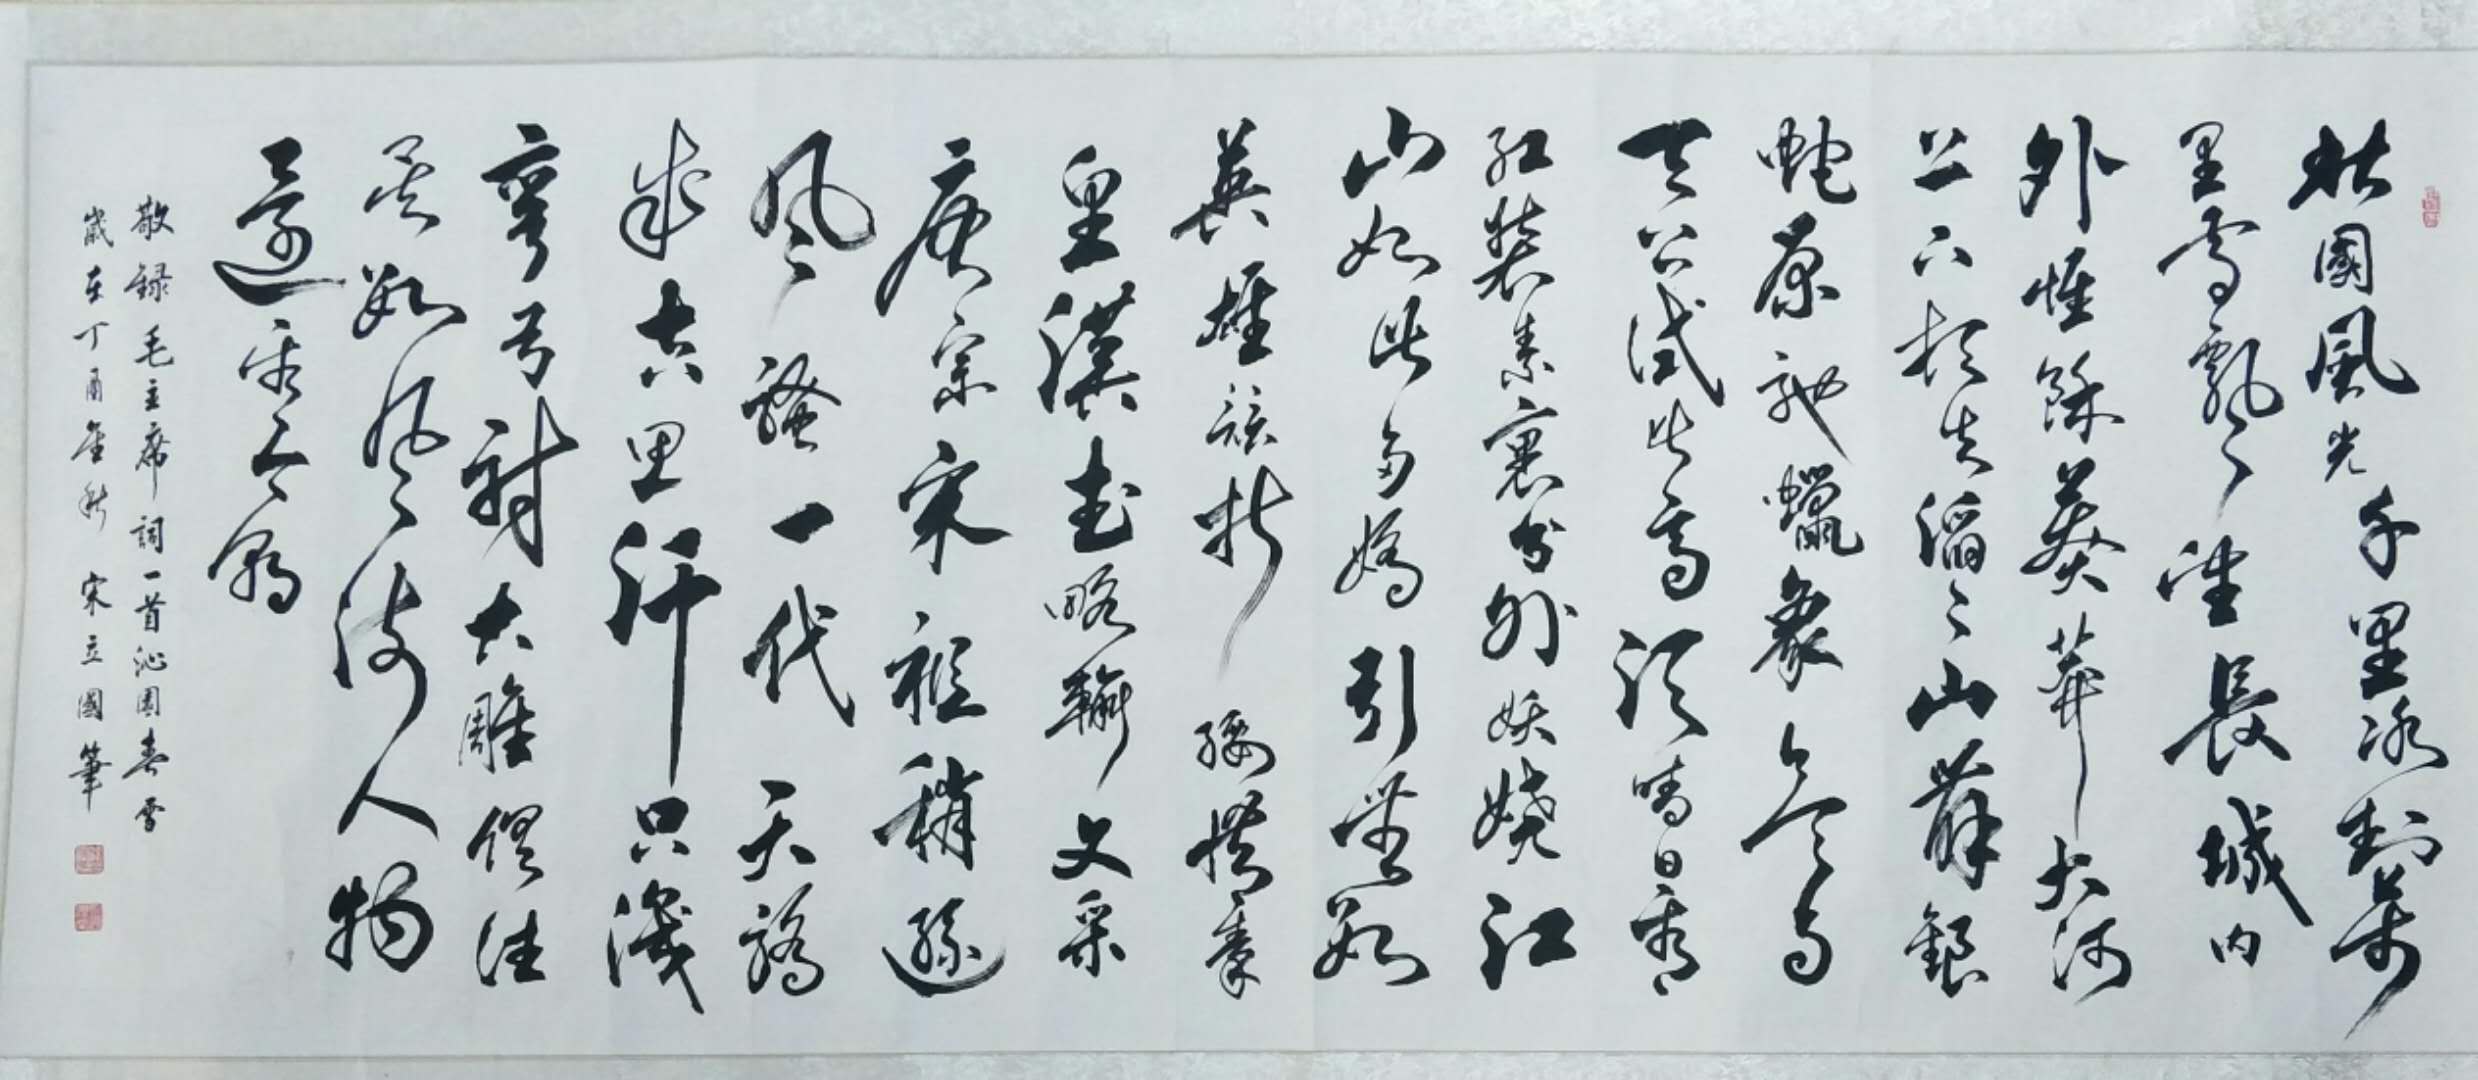 北國風光千里冰封萬
里雪飄々望長城内
外惟餘莽莽大河
上下頓失滔々山舞銀
蛇原馳蠟象欲与
天公試比高須晴日看
紅裝素裹分外妖嬈江
山如此多嬌引無數
英雄競折腰惜秦
皇漢武略輸文采
唐宗宋祖稍遜
風騷一代天驕
成吉思汗只識
彎弓射大雕俱往
矣數風流人物
還看今朝
敬録毛主席詞一首沁園春雪
歲在丁酉金秋 宋立國筆